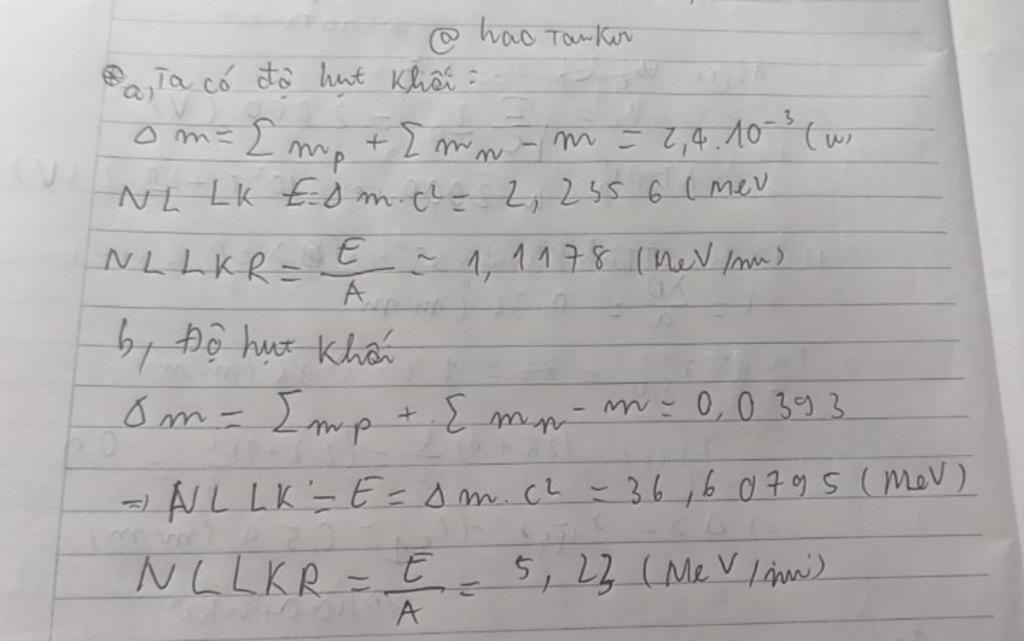 @ haotankur
⊕ a, Ta có độ hụt khối:
Δm = ∑ m_p + ∑ m_n - m = 2,4.10⁻³ (u)
NL LK E = Δm.c² = 2,2356 (MeV
NLLKR = E/A ≈ 1,1178 (MeV/nu)
b, Độ hụt khối
Δm = ∑ m_p + ∑ m_n - m = 0,0393
⇒ NLLK = E = Δm.c² = 36,60795 (MeV)
NLLKR = E/A = 5,23 (MeV/nu)